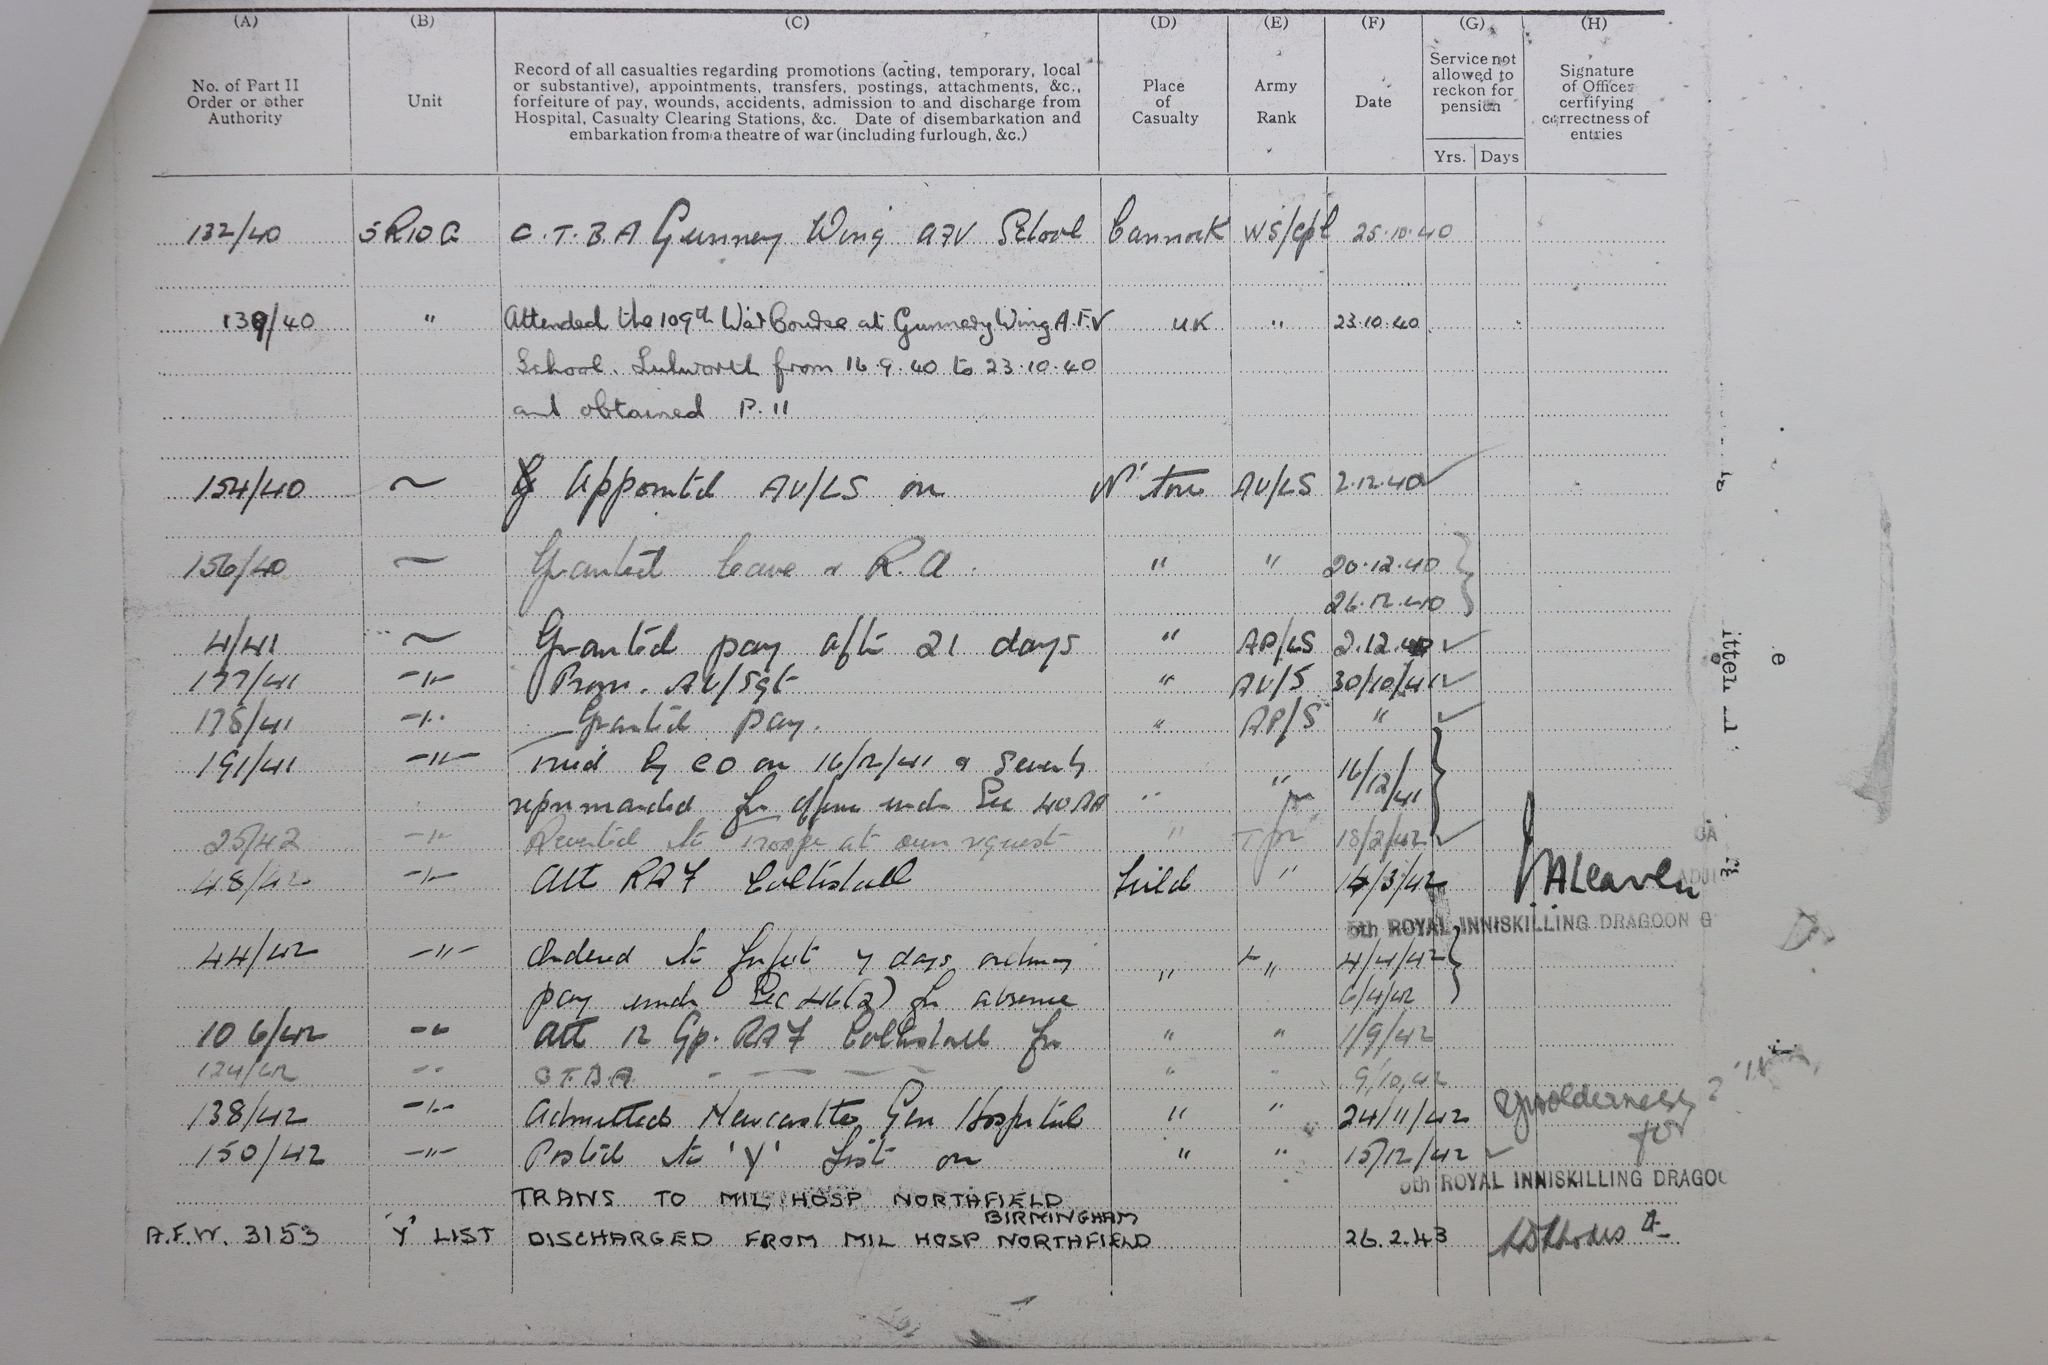 (A) (B) (C) (D) (E) (F) (G) (H)
No. of Part II Order or other Authority
Unit
Record of all casualties regarding promotions (acting, temporary, local
or substantive), appointments, transfers, postings, attachments, &c.,
forfeiture of pay, wounds, accidents, admission to and discharge from
Hospital, Casualty Clearing Stations, &c. Date of disembarkation and
embarkation from a theatre of war (including furlough, &c.)
Place of Casualty
Army Rank
Date
Service not allowed to reckon for pension
Yrs. Days
Signature of Officer certifying correctness of entries
132/40 C.T.B.A Gunnery Wing AFV School Cannock WS/Cpl 25.10.40
139/40 " Attended the 109th War Course at Gunnery Wing A.F.V UK " 23.10.40
School. Lulworth from 16.9.40 to 23.10.40
and obtained P.11
154/40 ~ Appointed AU/LS on AU/LS 2.12.40
156/40 ~ Granted leave & R.A. " " 20.12.40
26.12.40
4/41 ~ Granted pay after 21 days " AP/LS 2.12.40
177/41 -"- Prom. AU/Sgt " AU/S 30/10/41
178/41 -"- Granted pay. " AP/S "
191/41 -"- Tried by CO on 16/12/41 & severely " 16/12/41
reprimanded for offence under Sec 40 AA "
25/42 -"- Reverted to Trooper at own request " Tpr 18/2/42
48/42 -"- Att RAF Coltishall Field " /3/42
5th ROYAL INNISKILLING DRAGOON G
44/42 -"- Ordered to forfeit 7 days ordinary " " 4/4/42
pay under Sec 46(2) for absence 6/4/42
106/42 -"- Att 12 Gp. RAF Coltishall for " " 1/9/42
124/42 -"- C.T.B.A. " " 9/10/42
138/42 -"- Admitted Newcastle Gen Hospital " " 24/11/42
for
150/42 -"- Posted to 'Y' List on " " 15/12/42
5th ROYAL INNISKILLING DRAGOO
TRANS TO MIL HOSP NORTHFIELD
BIRMINGHAM
A.F.W. 3153 'Y' LIST DISCHARGED FROM MIL HOSP NORTHFIELD 26.2.43